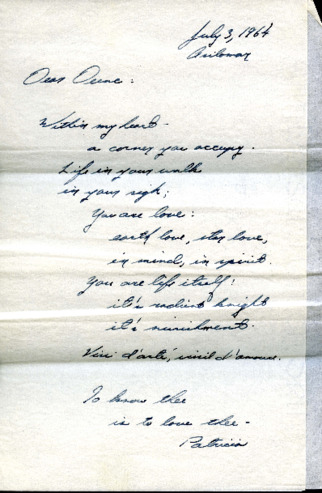 July 3, 1964
Asilomar
Dear Dunc:
Within my heart -
a corner you occupy.
Life in your walk
in your sigh;
You are love:
earth love, star love,
in mind, in spirit.
You are life itself:
it's radiant height
it's nourishment.
Vissi d'arte, vissi d'amore.
To know thee
is to love thee -
Patricia